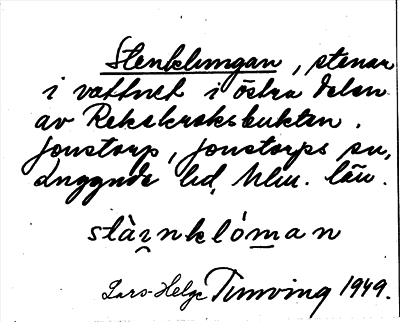 Stenklungan, stenar
i vattnet i östra delen
av Rekekroksbukten.
Jonstorp, Jonstorps sn,
Luggude hd, Mlm. län.
stài̯nkló͟man
Lars-Helge Tunving 1949.